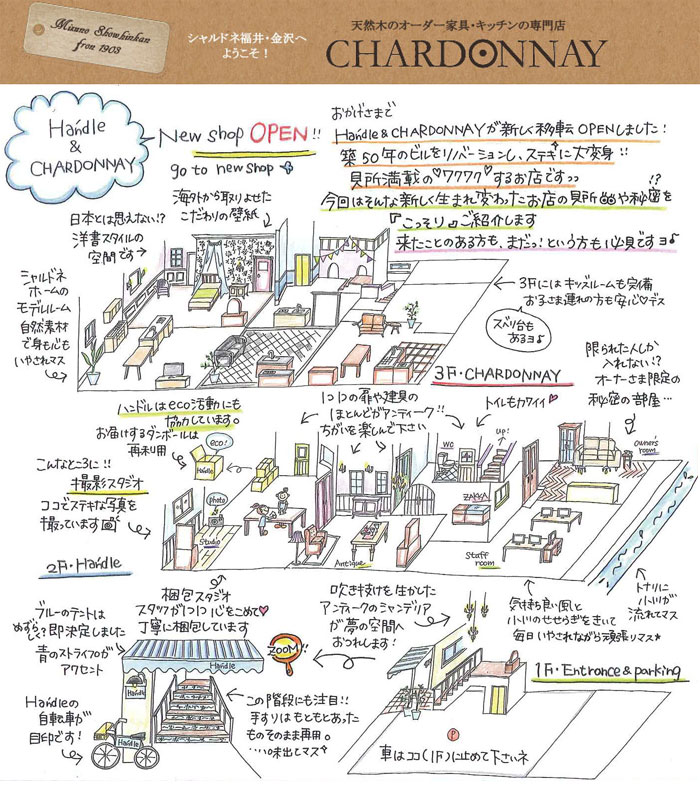 Mizuno Shouhinkan
from 1903
シャルドネ福井・金沢へ
ようこそ！
天然木のオーダー家具・キッチンの専門店
CHARDONNAY
Handle
&
CHARDONNAY
New shop OPEN!!
go to new shop
おかげさまで
Handle & CHARDONNAYが新しく移転OPENしました！
築50年のビルをリノベーションし、ステキに大変身!!
見所満載の♡ワクワク♡するお店です♪♪
今回はそんな新しく生まれ変わったお店の見所や秘密を!?
『こっそり』ご紹介します
来たことのある方も、まだっ！という方も必見ですヨ♪
日本とは思えない!?
洋書スタイルの
空間です→
海外から取りよせた
こだわりの壁紙
シャルドネ
ホームの
モデルルーム
自然素材
で身も心も
いやされマス
←3Fにはキッズルームも完備
お子さま連れの方も安心♡デス
スベリ台も
あるヨ♪
3F・CHARDONNAY
限られた人しか
入れない!?
オーナーさま限定の
秘密の部屋…
ハンドルはeco活動にも
協力しています。
お届けするダンボールは
再利用
eco!
Handle
1コ1コの扉や建具の
ほとんどがアンティーク!!
ちがいを楽しんで下さい
トイレもカワイイ♥
WC
up!
owner's
room
こんなところに!!
撮影スタジオ
ココでステキな写真を
撮っています
photo
Studio
ZAKKA
Antique
Staff
room
2F・Handle
梱包スタジオ
スタッフが1つ1つ心をこめて♥
丁寧に梱包しています
吹き抜けを生かした
アンティークのシャンデリア
が夢の空間へ
おつれします！
気持ち良い風と
小川のせせらぎをきいて
毎日いやされながら頑張りマス
トナリに
小川が
流れてマス
ブルーのテントは
めずらしく？即決定しました
青のストライプが
アクセント
Handle
Handle
ZOOM!!
1F・Entrance & parking
Handleの
自転車が
目印です！
Handle
この階段にも注目!!
手すりはもともとあった
ものそのまま再用。
…いい味出してマス
P
車はココ(1F)に止めて下さいネ